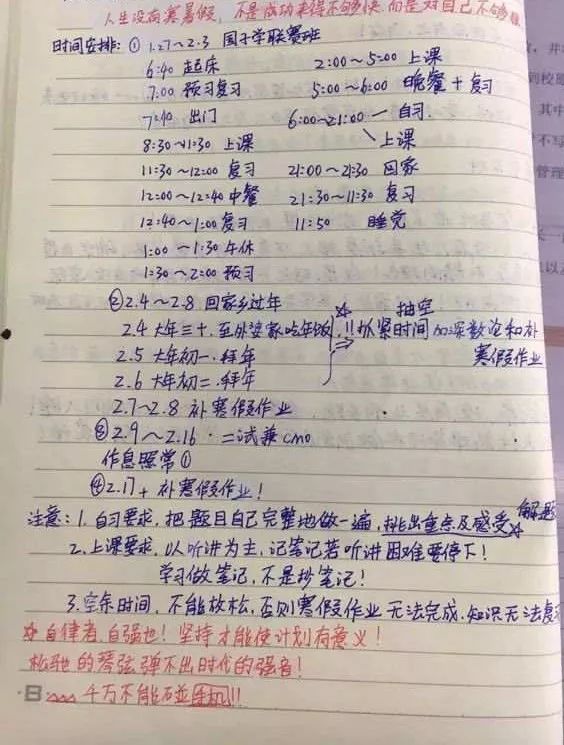 人生没有寒暑假，不是成功来得不够快，而是对自己不够狠
时间安排：① 1.27～2.3 国子学联赛班
6:40 起床
7:00 预习复习
7:40 出门
8:30～11:30 上课
11:30～12:00 复习
12:00～12:40 中餐
12:40～1:00 复习
1:00～1:30 午休
1:30～2:00 预习
2:00～5:00 上课
5:00～6:00 晚餐+复习
6:00～21:00 一自习.
上课
21:00～21:30 回家
21:30～11:30 复习
11:50 睡觉
②2.4～2.8 回家乡过年
2.4 大年三十.至外婆家吃年饭
2.5 大年初一.拜年
2.6 大年初二.拜年
☆ 抽空
!! 抓紧时间加深数论和补
寒假作业
2.7～2.8 补寒假作业
③2.9～2.16 · 二试兼cmo
作息照常①
④2.17+ 补寒假作业！
注意：1. 自习要求，把题目自己完整地做一遍，挑出重点及感受☆解题
2. 上课要求，以听讲为主，记笔记若听讲困难要停下！
学习做笔记，不是抄笔记！
3.空余时间，不能放松，否则寒假作业无法完成，知识无法复
☆自律者，自强也！坚持才能使计划有意义！
松驰的琴弦弹不出时代的强音！
千万不能碰手机!!